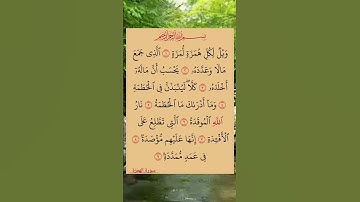 بسم الله الرحمن الرحيم
وَيْلٌ لِّكُلِّ هُمَزَةٍ لُّمَزَةٍ ١ ٱلَّذِى جَمَعَ
مَالًا وَعَدَّدَهُۥ ٢ يَحْسَبُ أَنَّ مَالَهُۥٓ
أَخْلَدَهُۥ ٣ كَلَّا لَيُنۢبَذَنَّ فِى ٱلْحُطَمَةِ
٤ وَمَآ أَدْرَىٰكَ مَا ٱلْحُطَمَةُ ٥ نَارُ
ٱللَّهِ ٱلْمُوقَدَةُ ٦ ٱلَّتِى تَطَّلِعُ عَلَى
ٱلْأَفْـِٔدَةِ ٧ إِنَّهَا عَلَيْهِم مُّؤْصَدَةٌ ٨
فِى عَمَدٍ مُّمَدَّدَةٍۭ ٩
سورة الهمزة